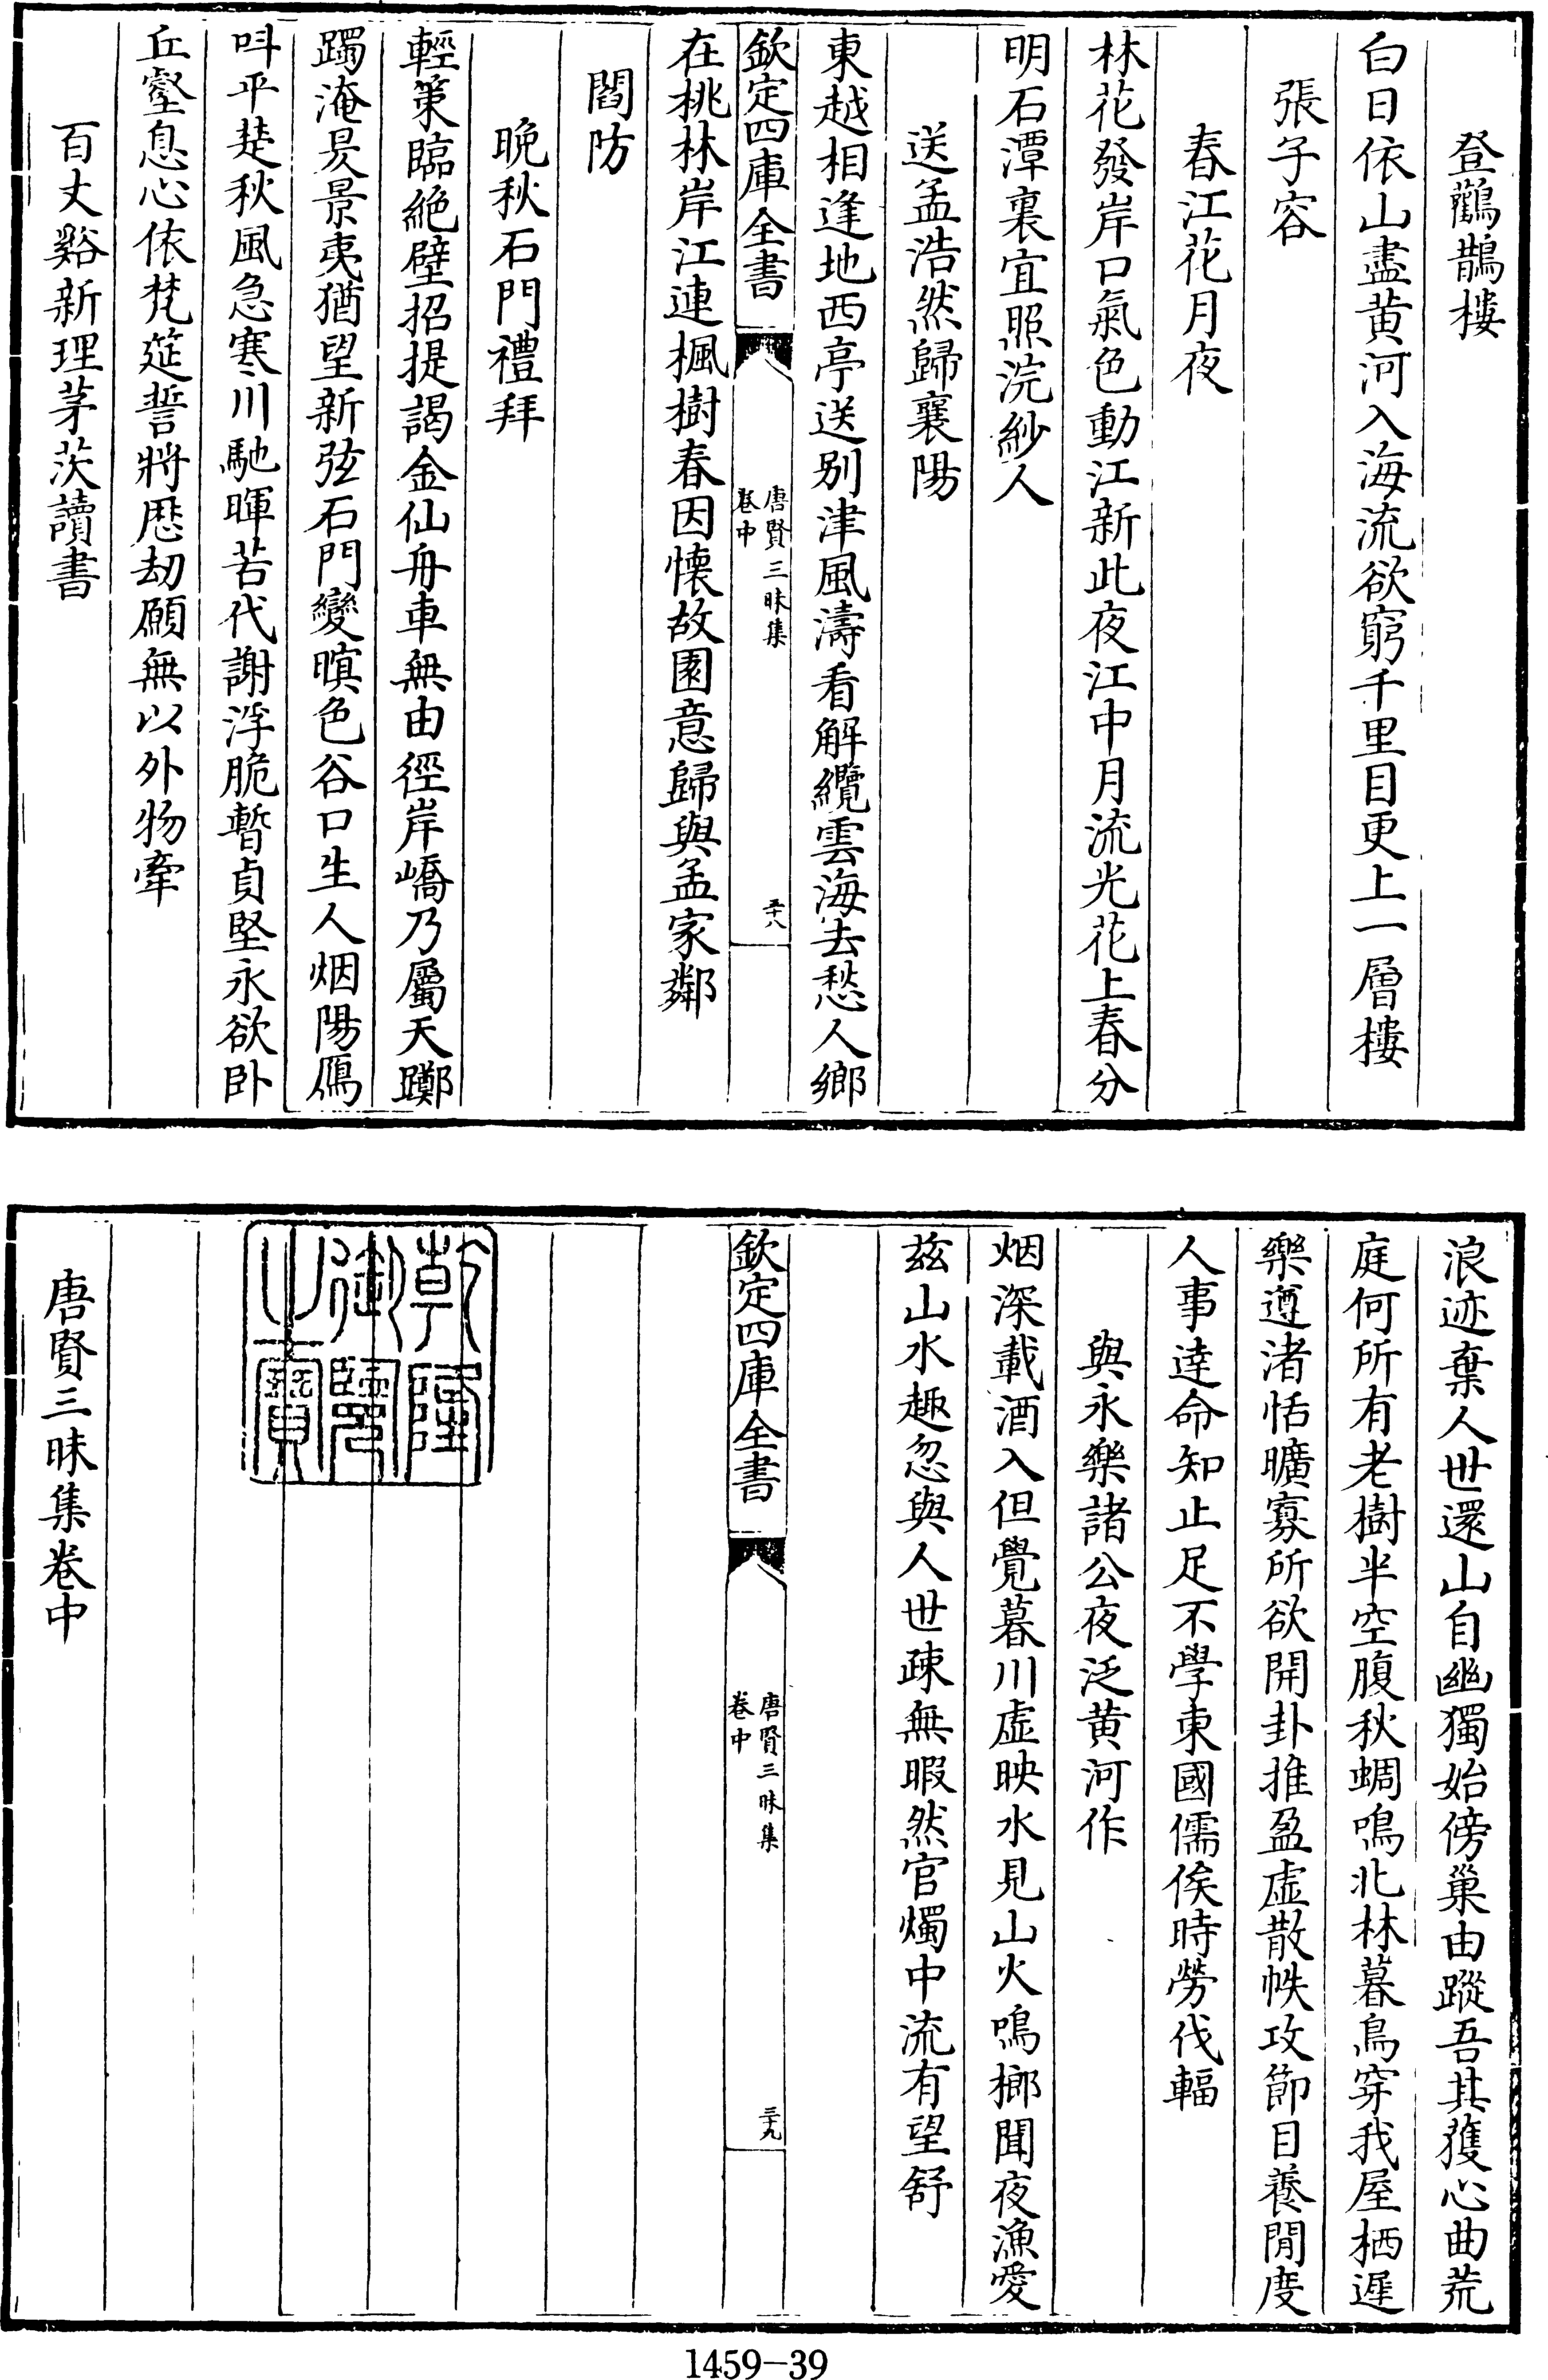 登鸛鵲樓
白日依山盡黄河入海流欲窮千里目更上一層樓
張子容
春江花月夜
林花發岸口氣色動江新此夜江中月流光花上春分
明石潭裏宜照浣紗人
送孟浩然歸襄陽
東越相逢地西亭送别津風濤看解纜雲海去愁人鄉
欽定四庫全書
唐賢三昧集
卷中
三十八
在桃林岸江連楓樹春因懐故園意歸與孟家鄰
閻防
晚秋石門禮拜
輕策臨絶壁招提謁金仙舟車無由徑岸嶠乃屬天躑
躅淹昃景夷猶望新弦石門變暝色谷口生人烟陽鴈
呌平楚秋風急寒川馳暉苦代謝浮脆暫貞堅永欲卧
丘壑息心依梵筵誓將厯刼願無以外物牽
百丈谿新理茅茨讀書
浪迹棄人世還山自幽獨始傍巢由蹤吾其獲心曲荒
庭何所有老樹半空腹秋蜩鳴北林暮鳥穿我屋栖遲
樂遵渚恬曠寡所欲開卦推盈虚散帙攻節目養閒度
人事達命知止足不學東國儒俟時勞伐輻
與永樂諸公夜泛黄河作
烟深載酒入但覺暮川虚映水見山火鳴榔聞夜漁愛
兹山水趣忽與人世疎無暇然官燭中流有望舒
欽定四庫全書
唐賢三昧集
卷中
三十九
乾隆御覽之寶
唐賢三昧集卷中
1459-39